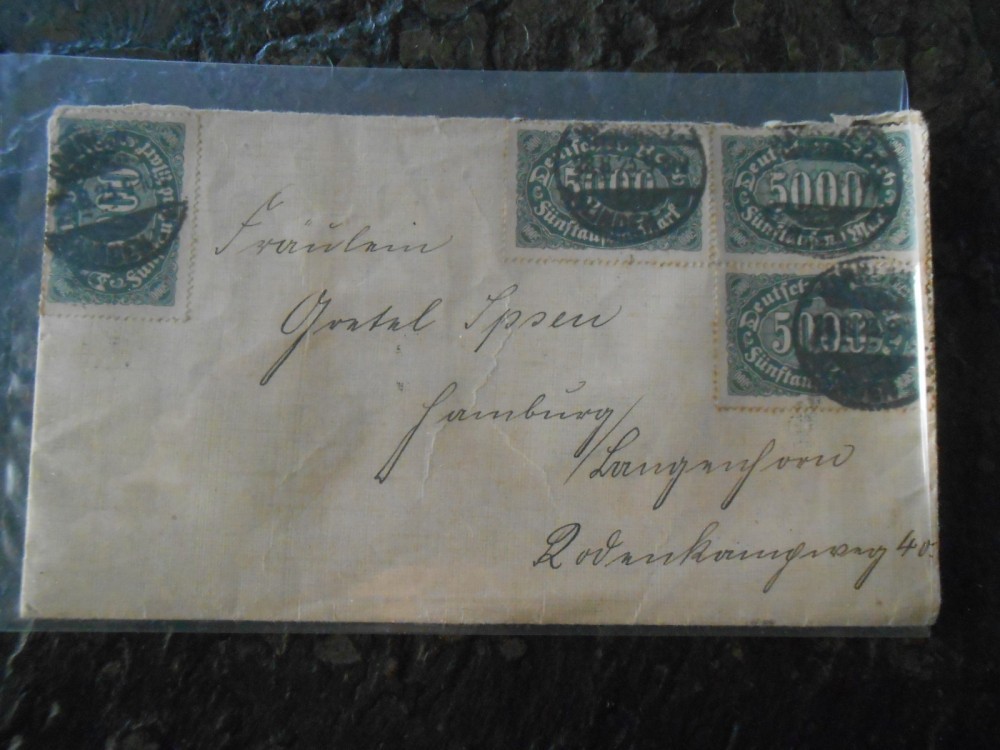 Deutsches Reich
5000
Fünftausend Mark
Deutsches Reich
5000
Fünftausend Mark
Deutsches
5000
Fünftausend
Fräulein
Gretel Ipsen
Hamburg/
/Langenhorn
Rodenkampweg 40.